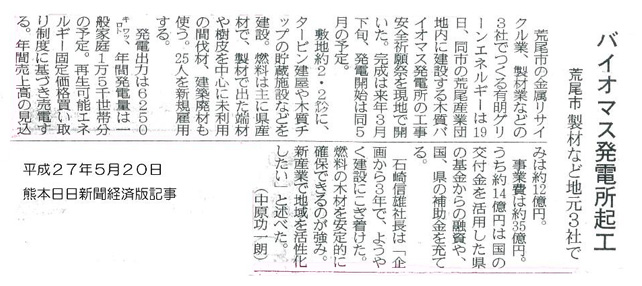 バイオマス発電所起工
荒尾市 製材など地元3社で
荒尾市の金属リサイ
クル業、製材業などの
3社でつくる有明グリ
ーンエネルギーは19
日、同市の荒尾産業団
地内に建設する木質バ
イオマス発電所の工事
安全祈願祭を現地で開
いた。完成は来年3月
下旬、発電開始は同5
月の予定。
敷地約2・2㌶に、
タービン建屋や木質チ
ップの貯蔵施設などを
建設。燃料は主に県産
材で、製材で出た端材
や樹皮を中心に未利用
の間伐材、建築廃材も
使う。25人を新規雇用
する。
発電出力は6250
キロワット、年間発電量は一
般家庭1万5千世帯分
の予定。再生可能エネ
ルギー固定価格買い取
り制度に基づき売電す
る。年間売上高の見込
みは約12億円。
事業費は約35億円。
うち約14億円は国の
交付金を活用した県
の基金からの融資や、
国、県の補助金を充て
る。
石崎信雄社長は「企
画から3年で、ようや
く建設にこぎ着けた。
燃料の木材を安定的に
確保できるのが強み。
新産業で地域を活性化
したい」と述べた。
(中原功一朗)
平成27年5月20日
熊本日日新聞経済版記事